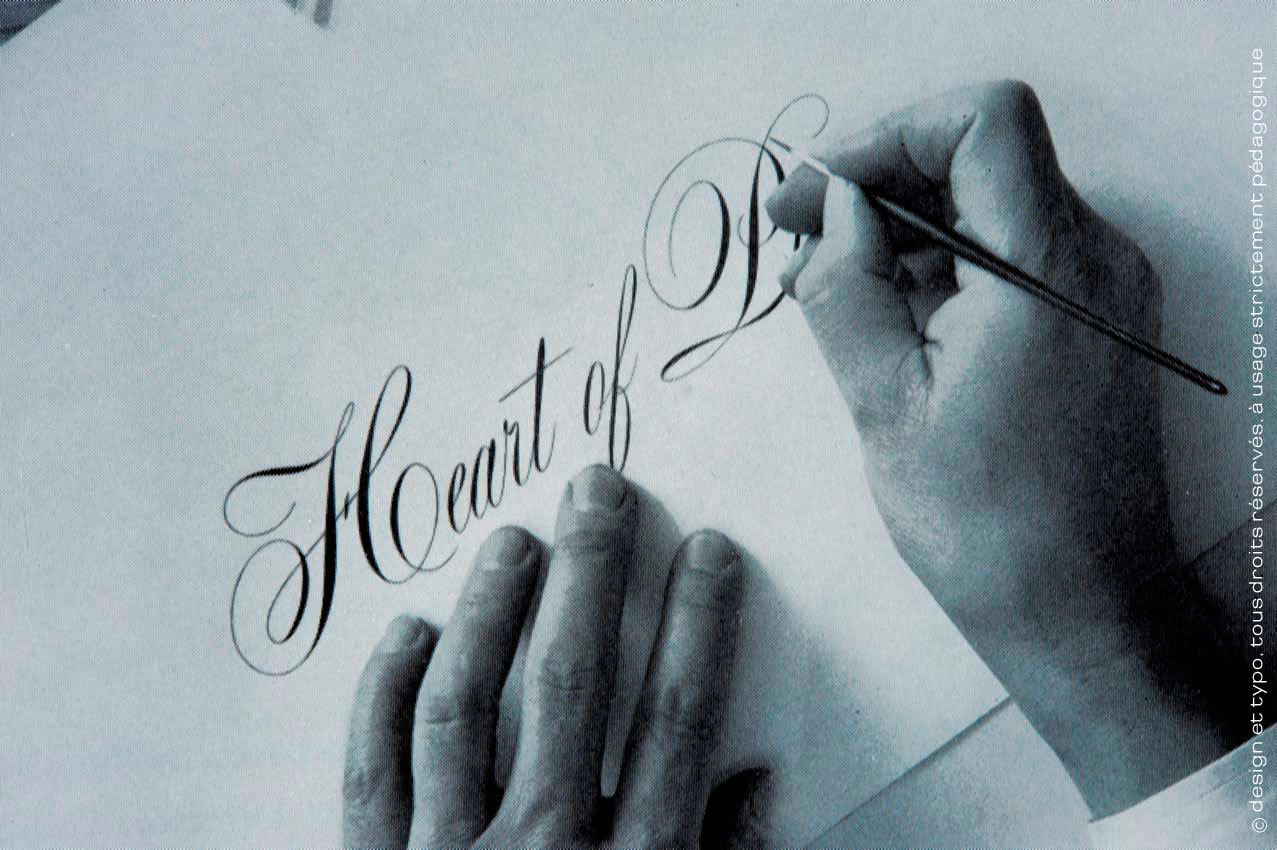 Heart of
© design et typo. tous droits réservés. à usage strictement pédagogique